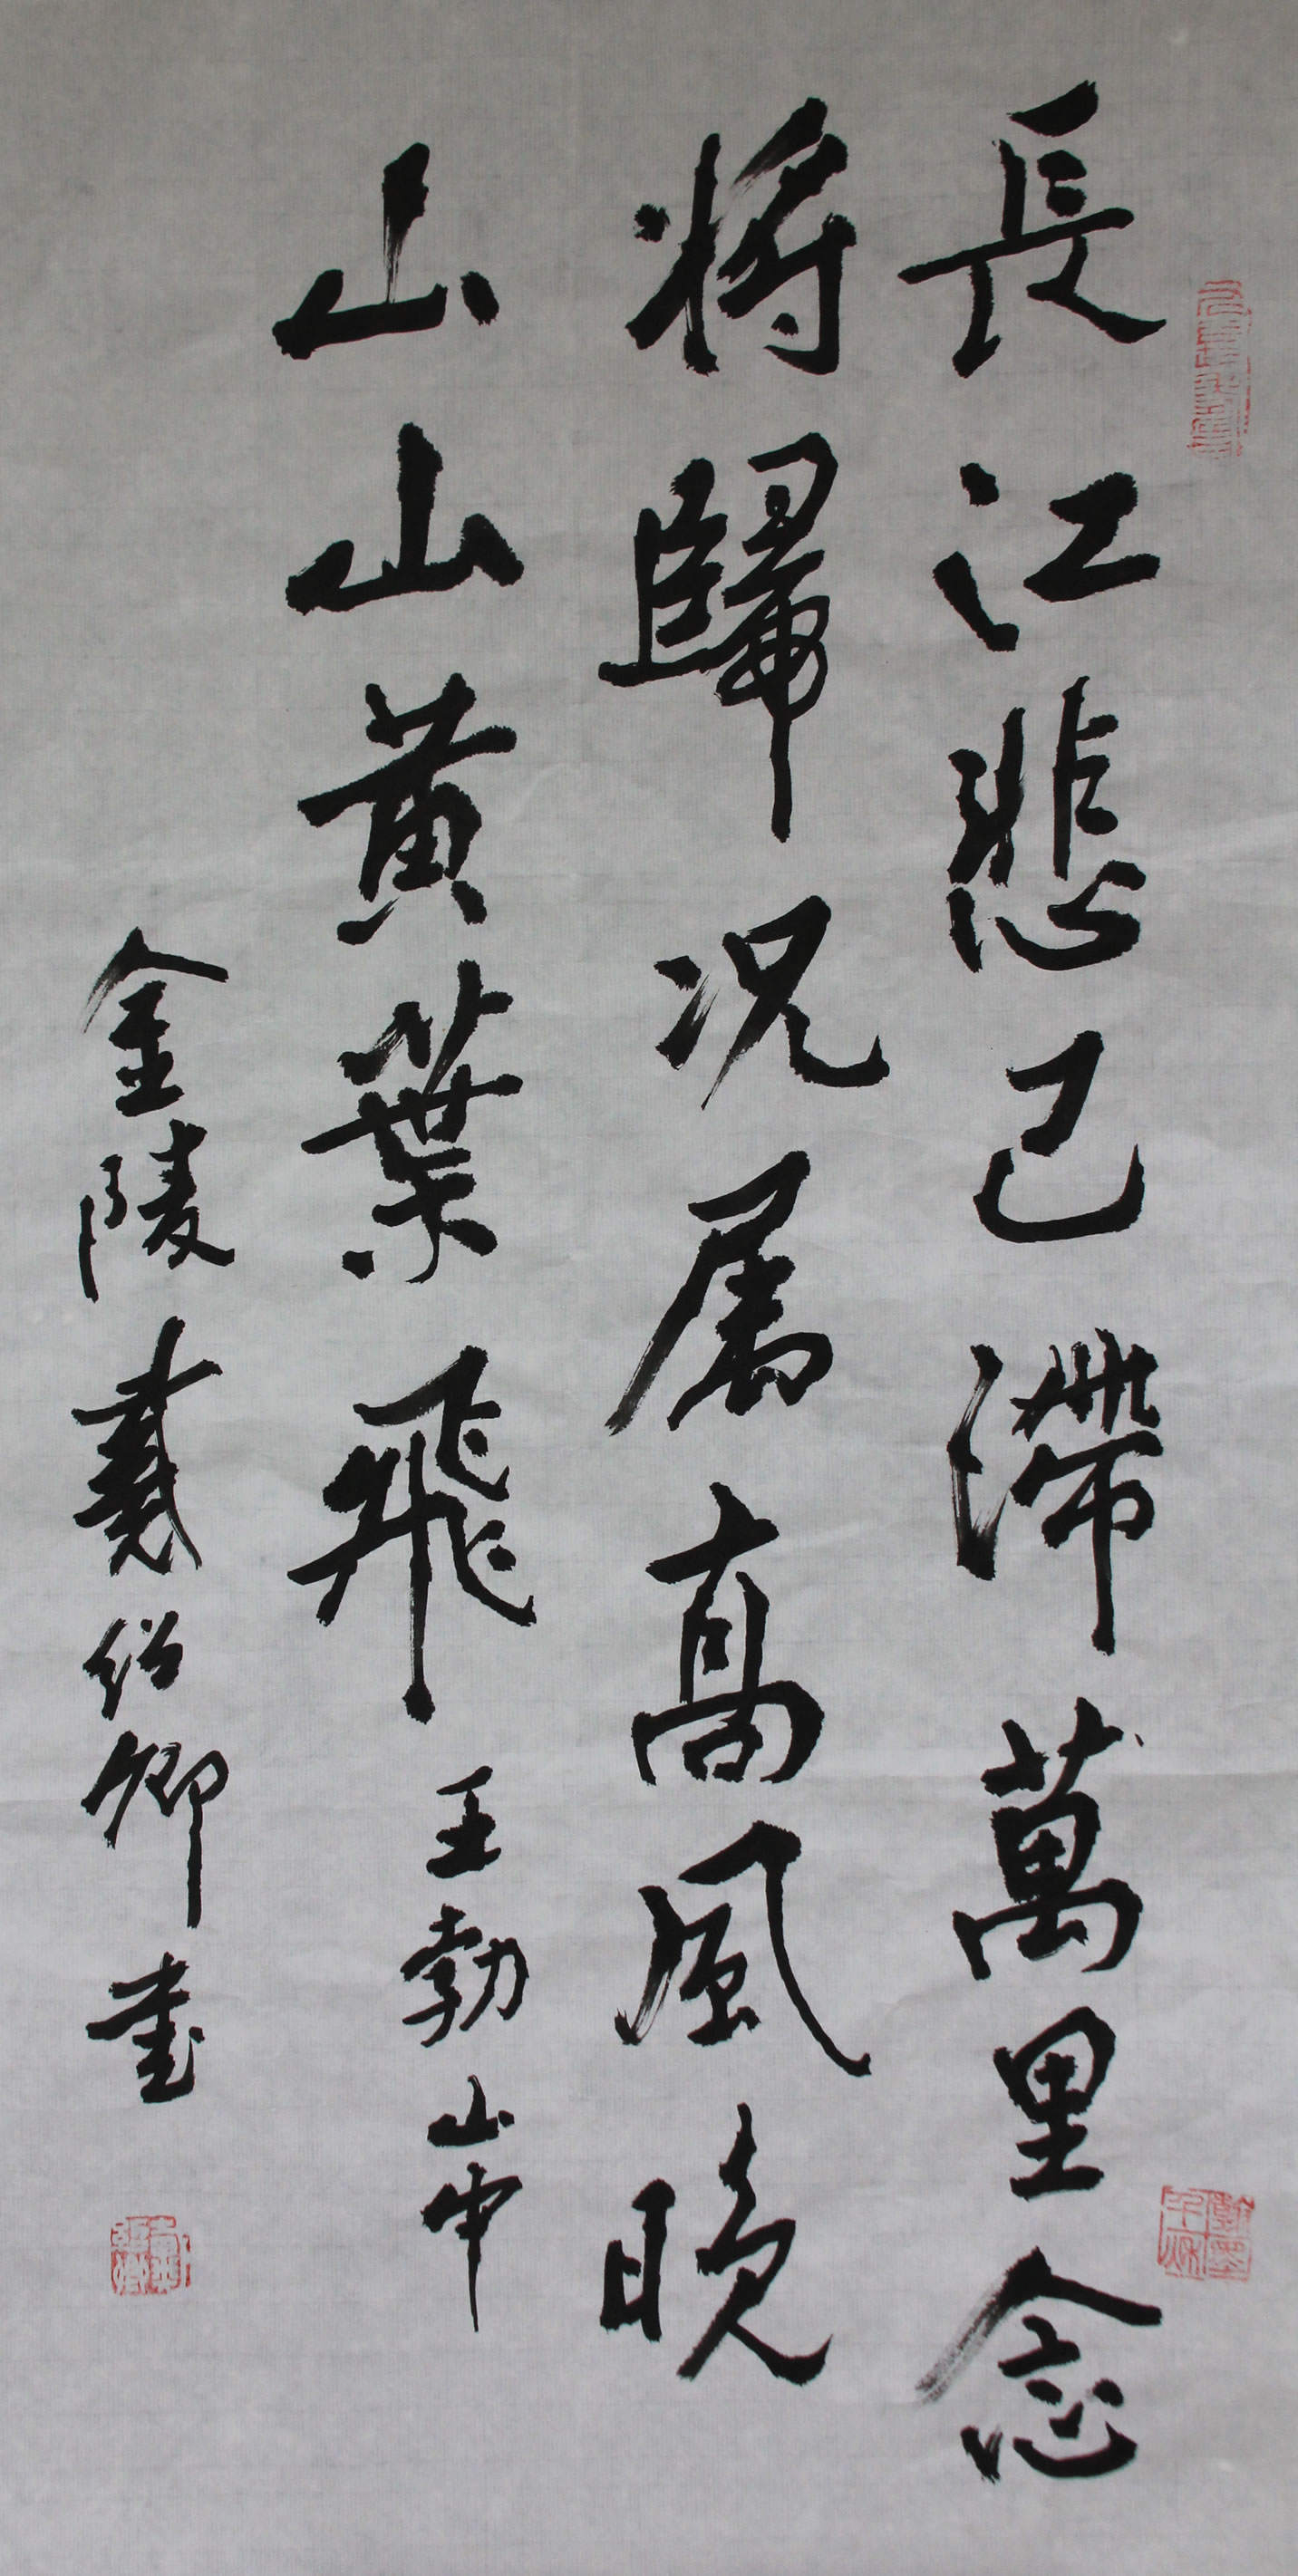 長江悲已滯萬里念
將歸况屬高風晚
山山黄葉飛王勃山中
金陵戴紹卿書